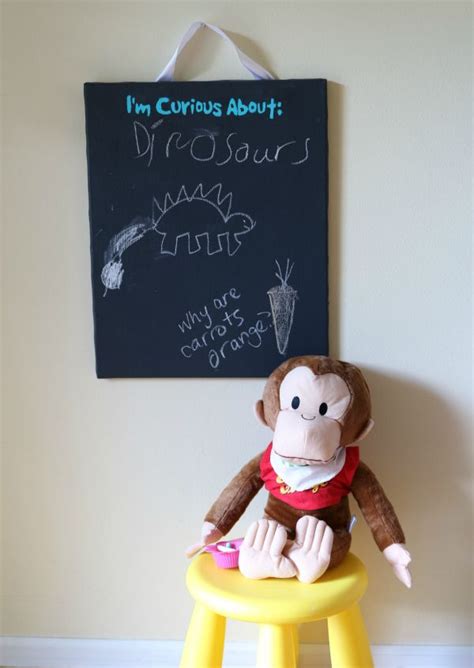 I'm Curious About:
Dinosaurs
why are
carrots
orange?